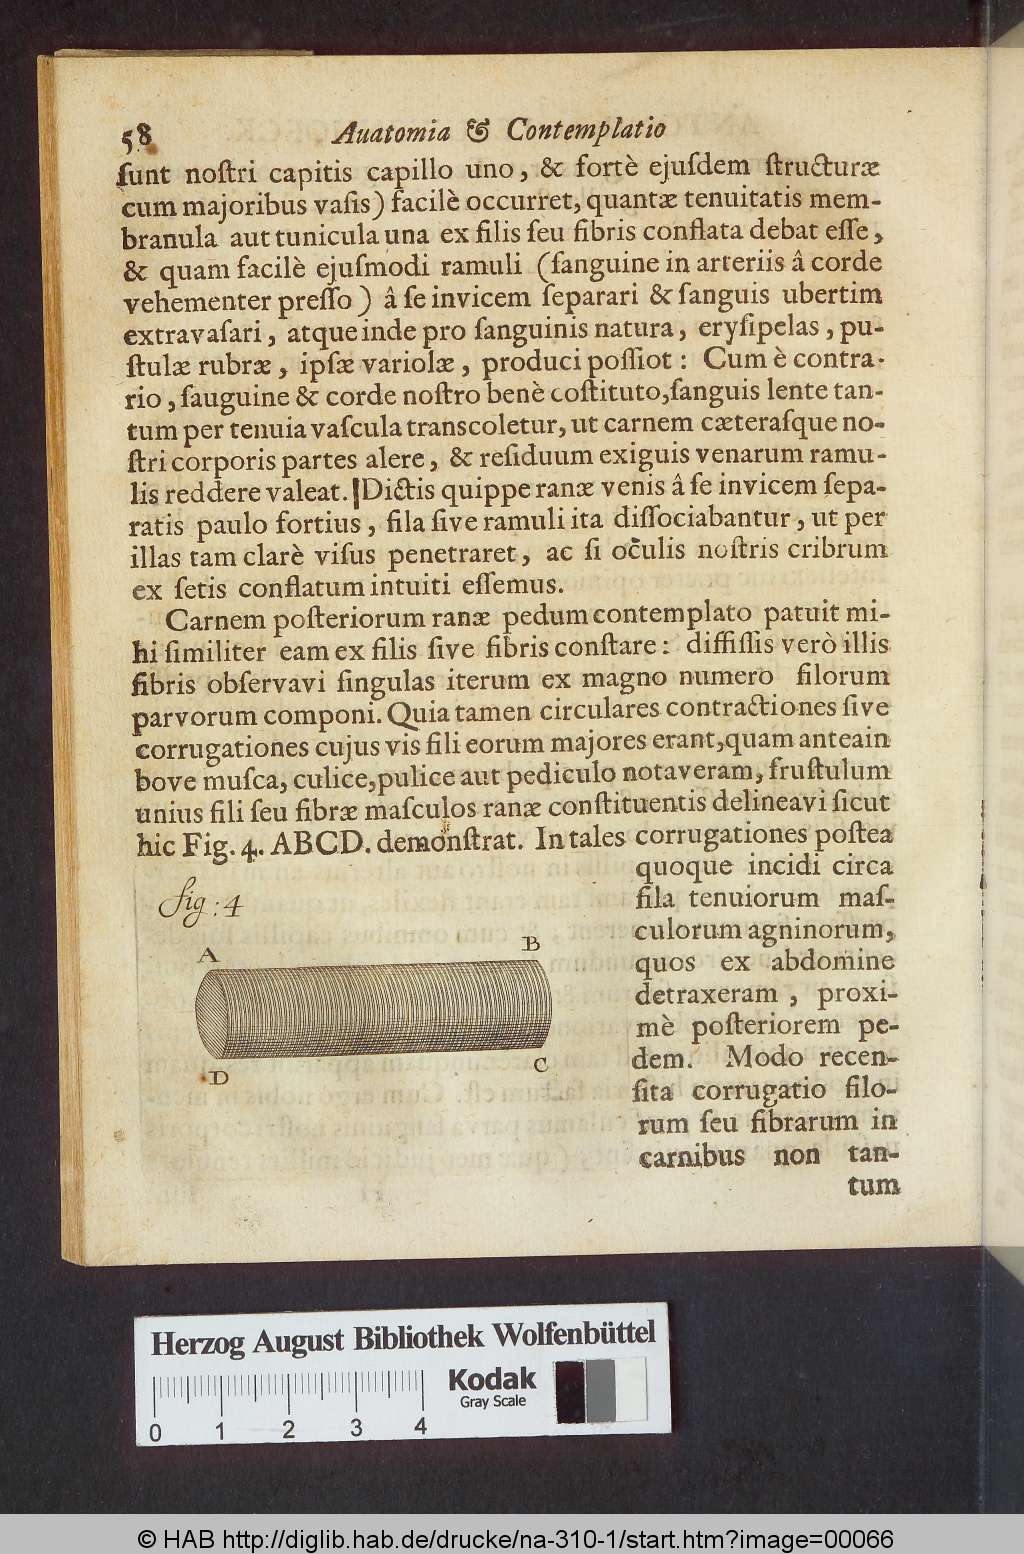 58 Auatomia & Contemplatio
ſunt noſtri capitis capillo uno, & fortè ejuſdem ſtructuræ
cum majoribus vaſis) facilè occurret, quantæ tenuitatis mem-
branula aut tunicula una ex filis ſeu fibris conflata debat eſſe,
& quam facilè ejuſmodi ramuli (ſanguine in arteriis â corde
vehementer preſſo) â ſe invicem ſeparari & ſanguis ubertim
extravaſari, atque inde pro ſanguinis natura, eryſipelas, pu-
ſtulæ rubræ, ipſæ variolæ, produci poſſiot: Cum è contra-
rio, ſauguine & corde noſtro benè coſtituto, ſanguis lente tan-
tum per tenuia vaſcula transcoletur, ut carnem cæteraſque no-
ſtri corporis partes alere, & reſiduum exiguis venarum ramu-
lis reddere valeat. Dictis quippe ranæ venis â ſe invicem ſepa-
ratis paulo fortius, fila ſive ramuli ita diſſociabantur, ut per
illas tam clarè viſus penetraret, ac ſi oculis noſtris cribrum
ex ſetis conflatum intuiti eſſemus.
Carnem poſteriorum ranæ pedum contemplato patuit mi-
hi ſimiliter eam ex filis ſive fibris conſtare: diffiſſis verò illis
fibris obſervavi ſingulas iterum ex magno numero filorum
parvorum componi. Quia tamen circulares contractiones ſive
corrugationes cujus vis fili eorum majores erant, quam antea in
bove muſca, culice, pulice aut pediculo notaveram, fruſtulum
unius fili ſeu fibræ maſculos ranæ conſtituentis delineavi ſicut
hic Fig. 4. ABCD. demonſtrat. In tales corrugationes poſtea
quoque incidi circa
fila tenuiorum maſ-
culorum agninorum,
quos ex abdomine
detraxeram, proxi-
mè poſteriorem pe-
dem. Modo recen-
ſita corrugatio filo-
rum ſeu fibrarum in
carnibus non tan-
tum
fig: 4
A B
D C
Herzog August Bibliothek Wolfenbüttel
Kodak
Gray Scale
0 1 2 3 4
© HAB http://diglib.hab.de/drucke/na-310-1/start.htm?image=00066